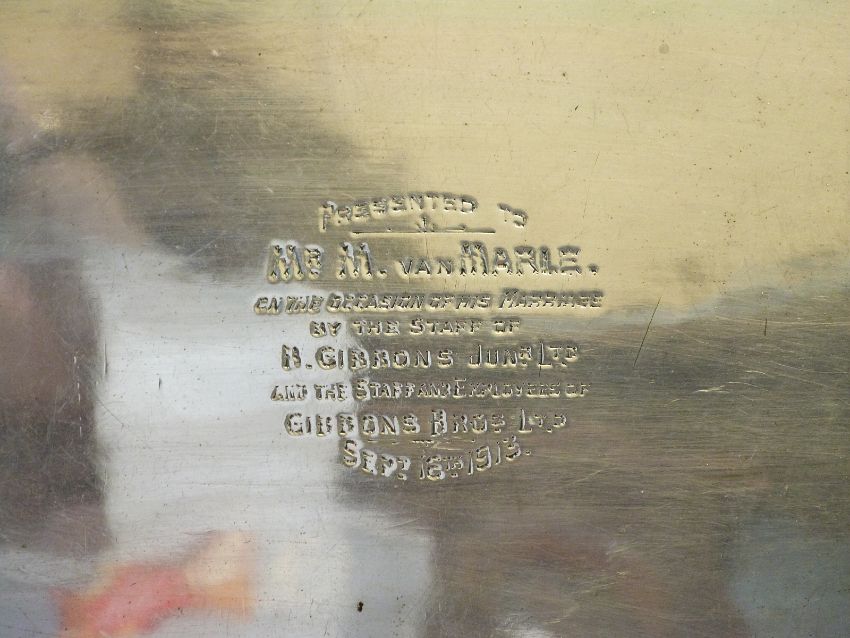 PRESENTED TO
MR M. VAN MARLE.
ON THE OCCASION OF HIS MARRIAGE
BY THE STAFF OF
B. GIBBONS JUNR LTD
AND THE STAFF AND EMPLOYEES OF
GIBBONS BROS LTD
SEPT 16TH 1913.